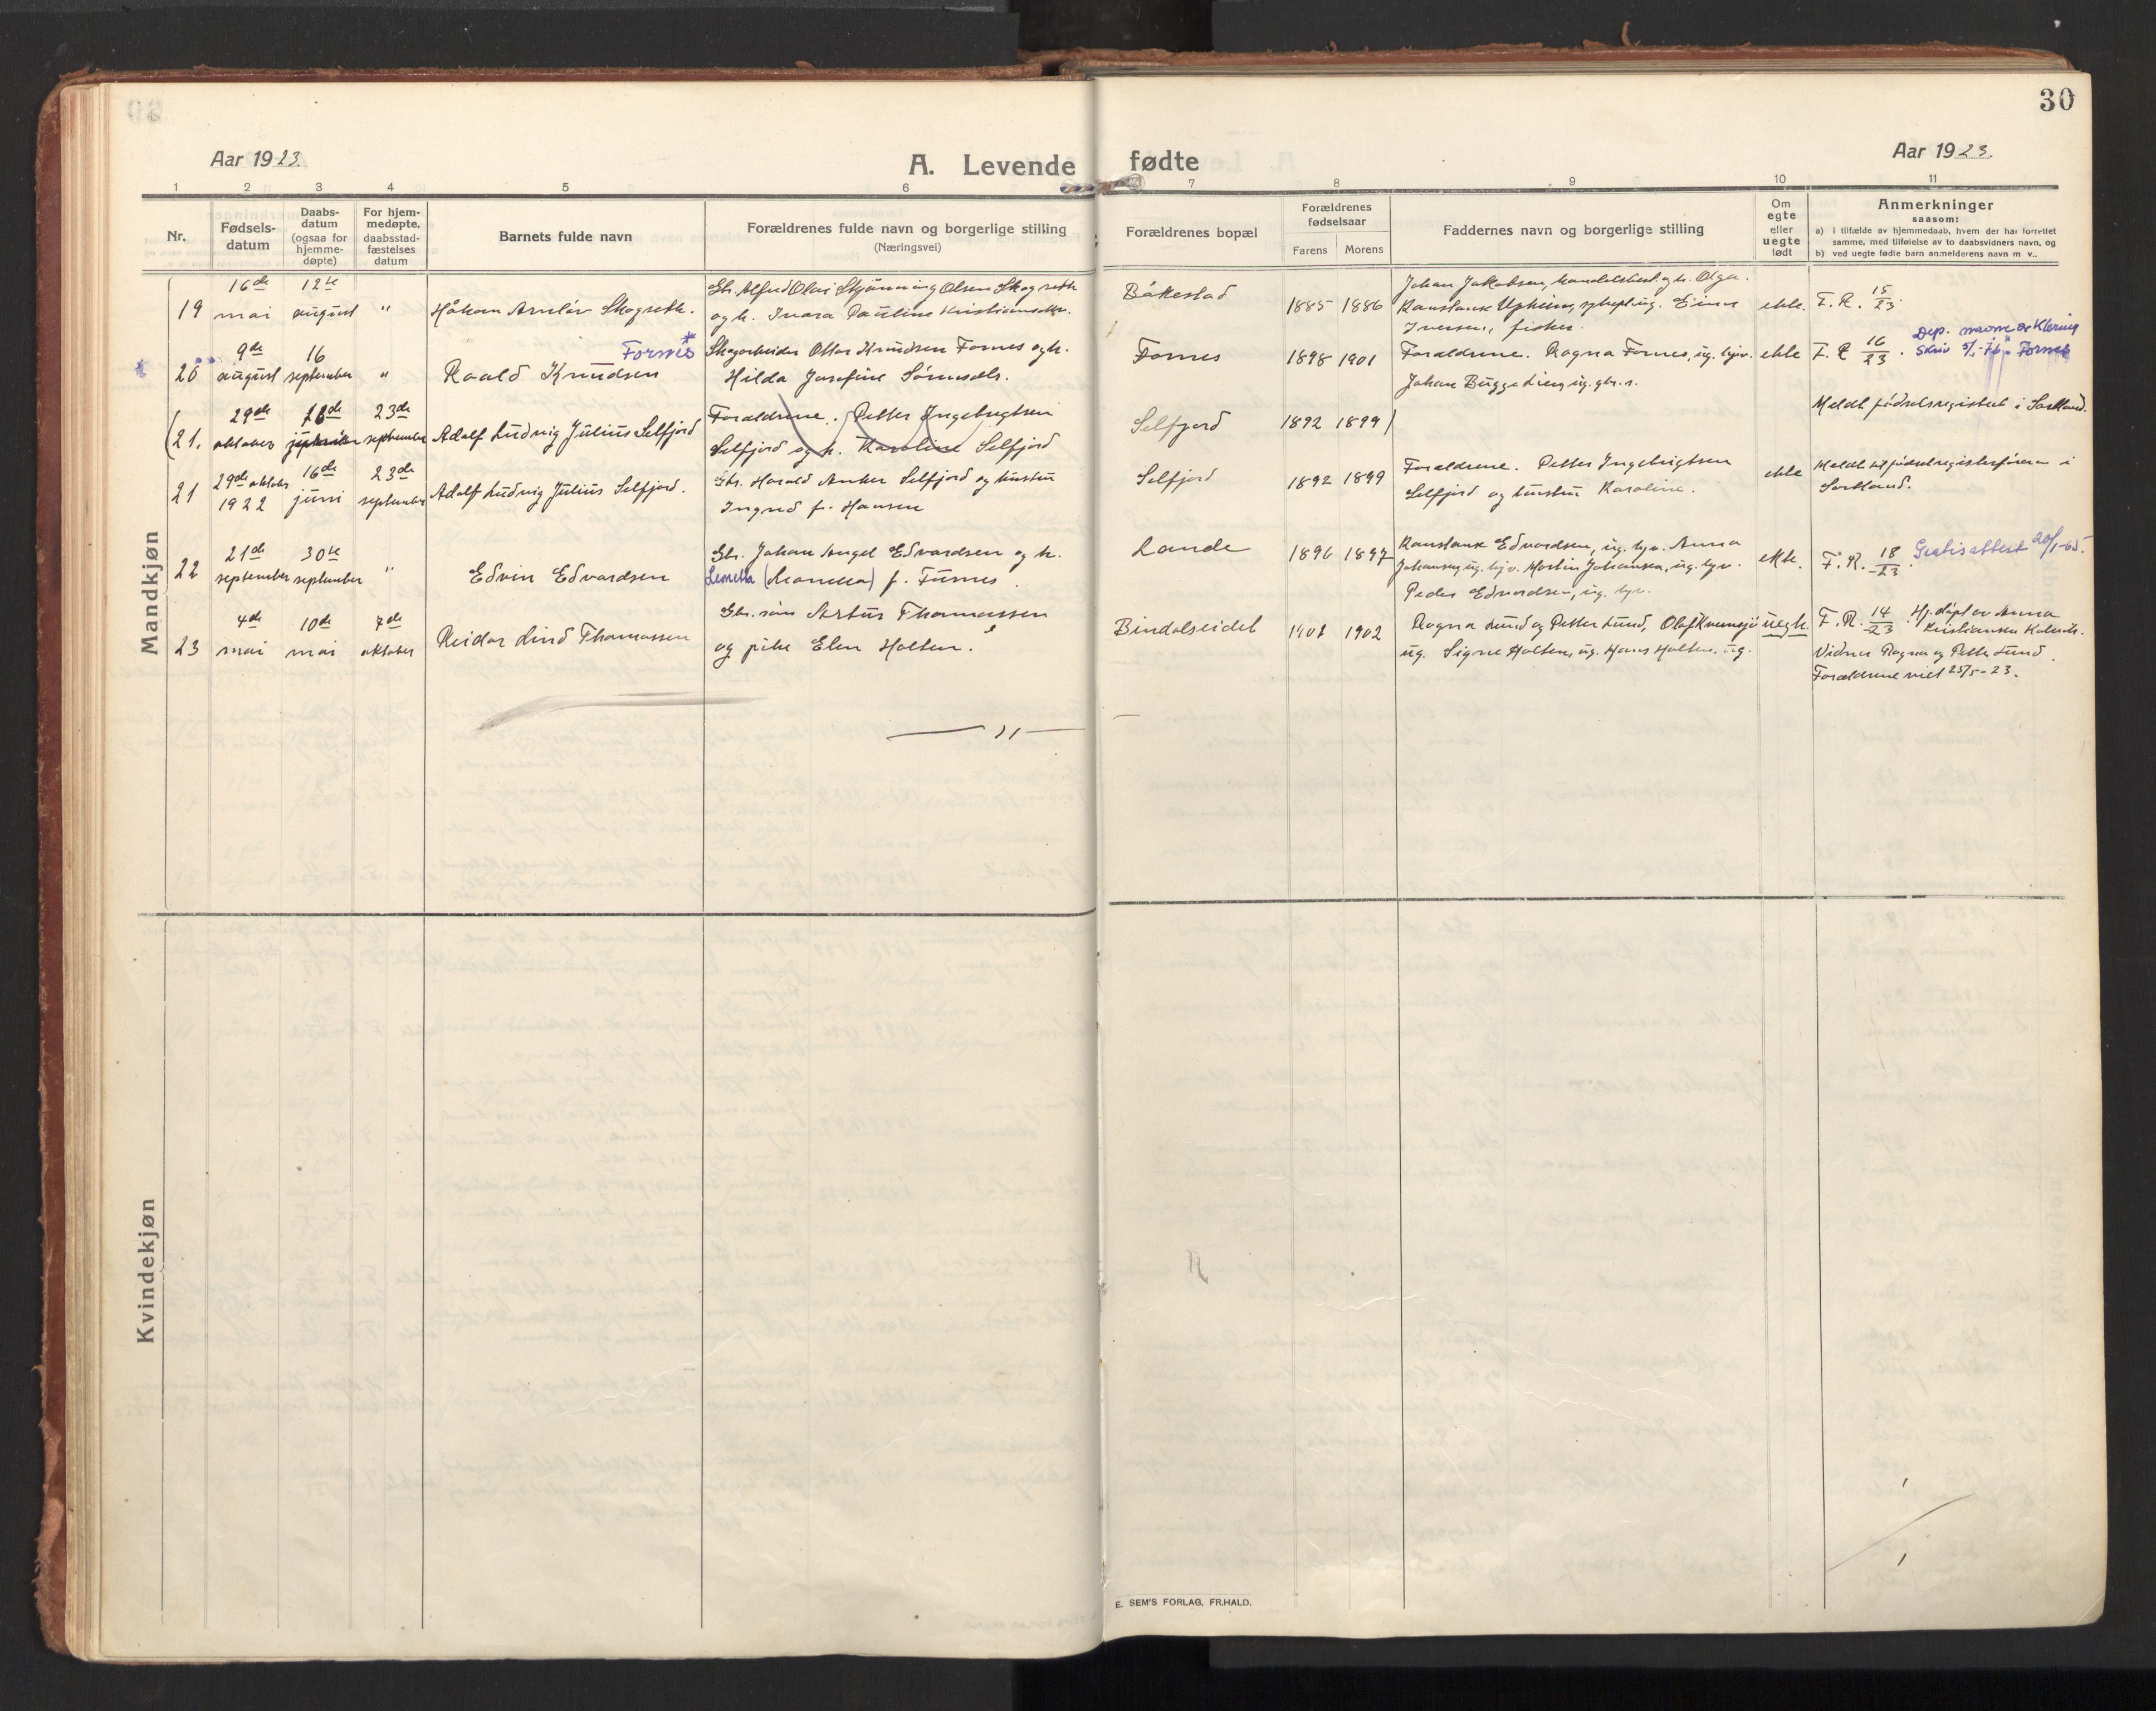 30
Aar 1923.
A. Levende fødte
Aar 1923.
1 2 3 4 5 6 7 8 9 10 11
Nr.
Fødsels-
datum
Daabs-
datum
(ogsaa for
hjemme-
døpte)
For hjem-
medøpte,
daabsstad-
fæstelses
datum
Barnets fulde navn
Forældrenes fulde navn og borgerlige stilling
(Næringsvei)
Forældrenes bopæl
Forældrenes
fødselsaar
Farens Morens
Faddernes navn og borgerlige stilling
Om
egte
eller
uegte
født
Anmerkninger
saasom:
a) i tilfælde av hjemmedaab, hvem der har forrettet
samme, med tilføielse av to daabsvidners navn, og
b) ved uegte fødte barn anmelderens navn m. v..
Mandkjøn
19
16de
mai
12te
august
"
Håkon Arnlöv Skogseth.
Gb. Alfred Olai Olsen Skogseth
og h. Inara Pauline
Båkestad
1885 1886
Johan Jakobsen, og h. Olga.
Einar
Iversen, fisker.
ekte.
F. R. 15/23.
20
9de
august
16
september
"
Fornes *
Roald Knudsen
Skogarbeider Ottar Knudsen Fornes og h.
Hilda Josefine
Fornes
1898 1901
Forældrene. Ragna Fornes, ug. hjv.
Johan Bugge Lien, ug. gbr. s.
ekte
F. R 16/23.
Dep. navne
skriv 5/1-76 "Fornes
(21.
29de
oktober
16de
23de
september
Adolf Ludvig Julius Selfjord
Forældrene. Petter Ingebrigtsen
Selfjord og h. Karoline Selfjord
Selfjord
1892 1899)
Meldt fødselsregisteret i Sortland.
21
29de oktober
1922
16de
juni
23de
september
Adolf Ludvig Julius Selfjord.
Gb. Harald Anker Selfjord og hustru
Ingrid f. Hansen
Selfjord
1892 1899
Forældrene. Petter Ingebrigtsen
Selfjord og hustru Karoline.
ekte
Meldt til fødselregisterføreren i
Sortland.
22
21de
september
30te
september
"
Edvin Edvardsen
Gb. Johan Angel Edvardsen og h.
f. Furnes.
Lande
1896 1897
Konstanse Edvardsen, ug. hjv. Anna
Johansen, ug. hjv. Martin Johansen, ug. hjv.
Peder Edvardsen, ug. hjv.
ekte.
F. R. 18/23.
Gratisattest 20/1-65.
23
4de
mai
10de
mai
7de
oktober
Reidar Lind Thomassen
Gb. søn Artur Thomassen
og pike Elen Holten.
Bindalseidet
1901 1902
Ragna Lund og Petter Lund, Olaf Kvernsjø
ug. Signe Holten, ug. Hans Holten, ug.
uegte.
F. R. 14/23.
Hj. døpt av Anna
Kristiansen
Vidner Ragna og Petter Lund.
Forældrene viet 25/5-23.
— 11 —
Kvindekjøn
E. SEM'S FORLAG, FR.HALD.